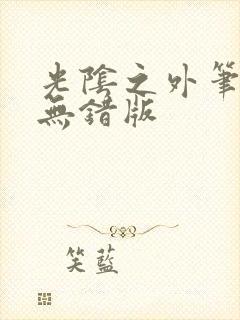 光陰之外筆
無錯版
笑藍